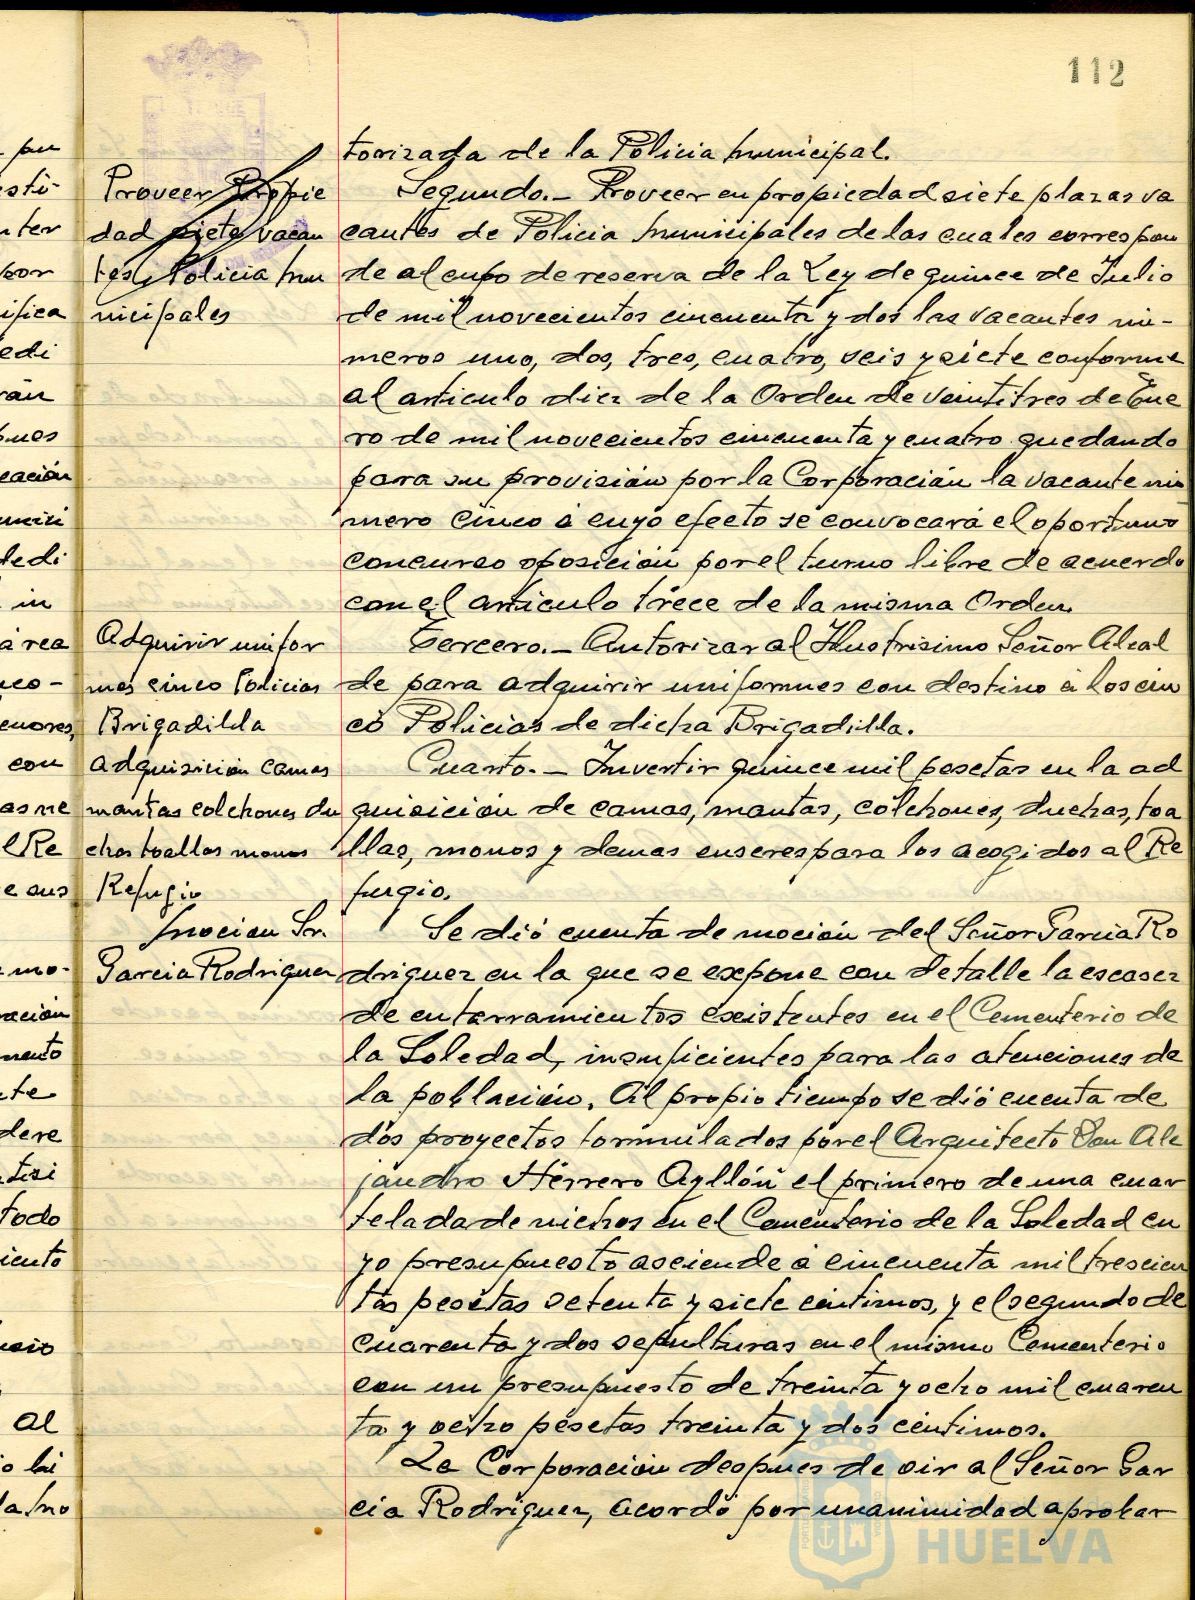 112
torizada de la Policia municipal.
Proveer Propie
dad siete vacan
tes Policia mu
nicipales
Segundo.- Proveer en propiedad siete plazas va
cantes de Policia municipales de las cuales correspon
de al cupo de reserva de la Ley de quince de Julio
de mil novecientos cincuenta y dos las vacantes nú-
meros uno, dos, tres, cuatro, seis y siete conforme
al articulo diez de la Orden de veintitres de Ene
ro de mil novecientos cincuenta y cuatro quedando
para su provisión por la Corporación la vacante nú
mero cinco á cuyo efecto se convocará el oportuno
concurso oposición por el turno libre de acuerdo
con el articulo trece de la misma Orden.
Adquirir unifor
mes cinco Policias
Brigadilla
Tercero.- Autorizar al Ilustrisimo Señor Alcal
de para adquirir uniformes con destino á los cin
co Policias de dicha Brigadilla.
adquisición camas
mantas colchones du
chas toallas monos
Refugio
Cuarto.- Invertir quince mil pesetas en la ad
quisición de camas, mantas, colchones, duchas, toa
llas, monos y demas enseres para los acogidos al Re
fugio.
moción Sr.
Garcia Rodriguez
Se dió cuenta de moción del Señor Garcia Ro
driguez en la que se expone con detalle la escasez
de enterramientos existentes en el Cementerio de
la Soledad, insuficientes para las atenciones de
la población. Al propio tiempo se dió cuenta de
dos proyectos formulados por el Arquitecto Don Ale
jandro Herrero Ayllón el primero de una cuar
telada de nichos en el Cementerio de la Soledad cu
yo presupuesto asciende á cincuenta mil trescien
tas pesetas setenta y siete céntimos, y el segundo de
cuarenta y dos sepulturas en el mismo Cementerio
con un presupuesto de treinta y ocho mil cuaren
ta y ocho pesetas treinta y dos céntimos.
La Corporación despues de oir al Señor Gar
cia Rodriguez, acordó por unanimidad aprobar
HUELVA